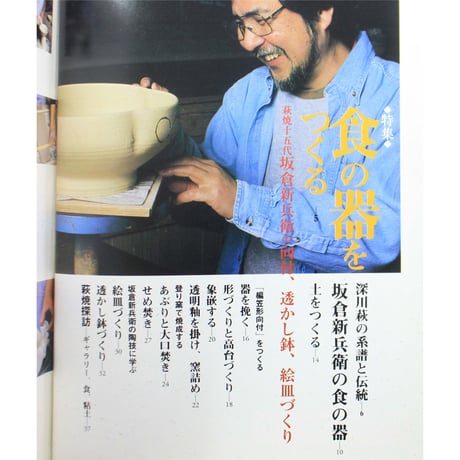 ◆特集◆
食の器を
つくる
萩焼十五代坂倉新兵衛の向付、透かし鉢、絵皿づくり
深川萩の系譜と伝統―6
坂倉新兵衛の食の器―10
土をつくる―14
「編笠形向付」をつくる
器を挽く―16
形づくりと高台づくり―18
象嵌する―20
透明釉を掛け、窯詰め―22
登り窯で焼成する
あぶりと大口焚き―24
せめ焚き―27
坂倉新兵衛の陶技に学ぶ
絵皿づくり―30
透かし鉢づくり―32
萩焼探訪―ギャラリー、食、粘土―37